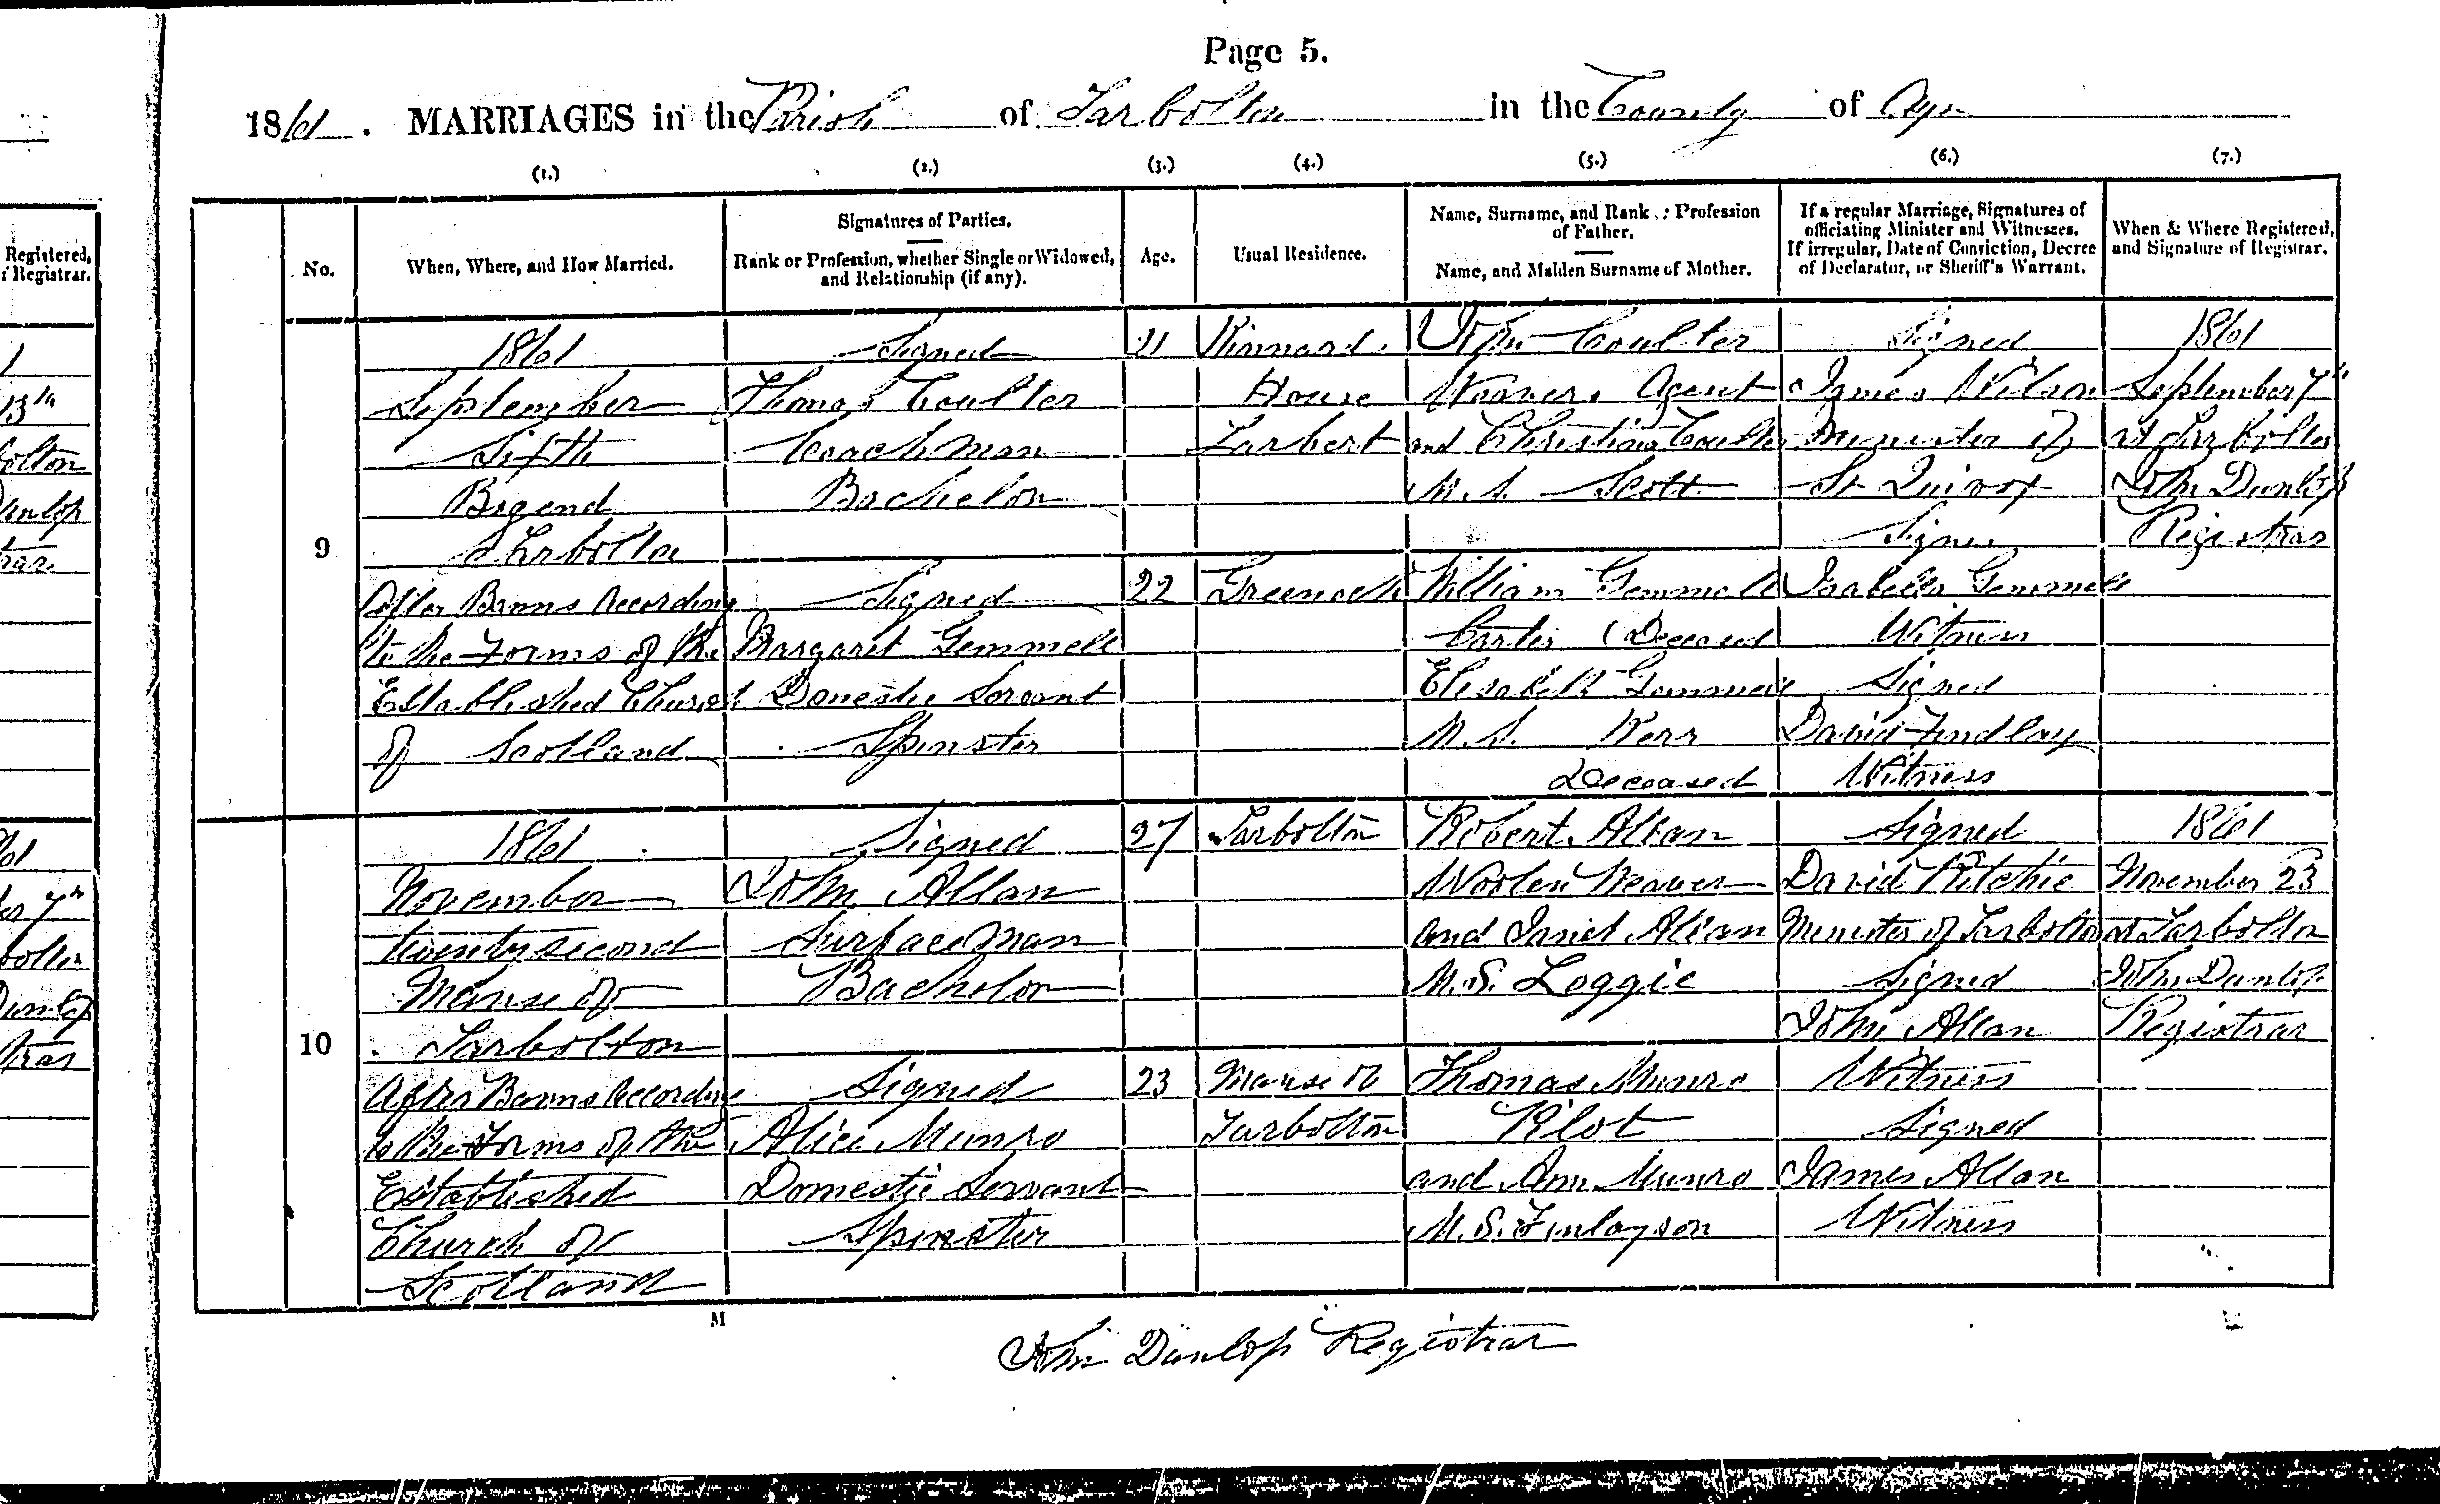 Page 5.
1861. MARRIAGES in the Parish of Tarbolton in the County of Ayr
(1.) (2.) (3.) (4.) (5.) (6.) (7.)
No.
When, Where, and How Married.
Signatures of Parties.
Rank or Profession, whether Single or Widowed,
and Relationship (if any).
Age.
Usual Residence.
Name, Surname, and Rank or Profession
of Father.
Name, and Maiden Surname of Mother.
If a regular Marriage, Signatures of
officiating Minister and Witnesses.
If irregular, Date of Conviction, Decree
of Declarator, or Sheriff's Warrant.
When & Where Registered,
and Signature of Registrar.
9
1861
September
Sixth
Tarbolton
After Banns according
to the Forms of the
Established Church
of Scotland
Signed
Thomas Coulter
Coachman
Bachelor
Signed
Margaret Gemmell
Domestic Servant
Spinster
21
22
Kinnard
House
Larbert
Greenock
John Coulter
Weavers Agent
and Christina Coulter
M.S. Scott
William Gemmell
Carter (Deceased
Elisabeth Gemmell
M.S. Kerr
Deceased
Signed
James Wilson
Minister of
St Quivox
Signed
Isabella Gemmell
Witness
Signed
David Findlay
Witness
1861
September 7th
at Tarbolton
John Dunlop
Registrar
10
1861
November
twenty second
Manse of
Tarbolton
After Banns according
to the Forms of the
Established
Church of
Scotland
Signed
John Allan
Surfaceman
Bachelor
Signed
Alice Munro
Domestic Servant
Spinster
27
23
Tarbolton
Manse of
Tarbolton
Robert Allan
Woolen Weaver
and Janet Allan
M.S. Loggie
Thomas Munro
Pilot
and Ann Munro
M.S. Finlayson
Signed
David Ritchie
Minister of Tarbolton
Signed
John Allan
Witness
Signed
James Allan
Witness
1861
November 23
at Tarbolton
John Dunlop
Registrar
M
John Dunlop Registrar
Registered,
Registrar.